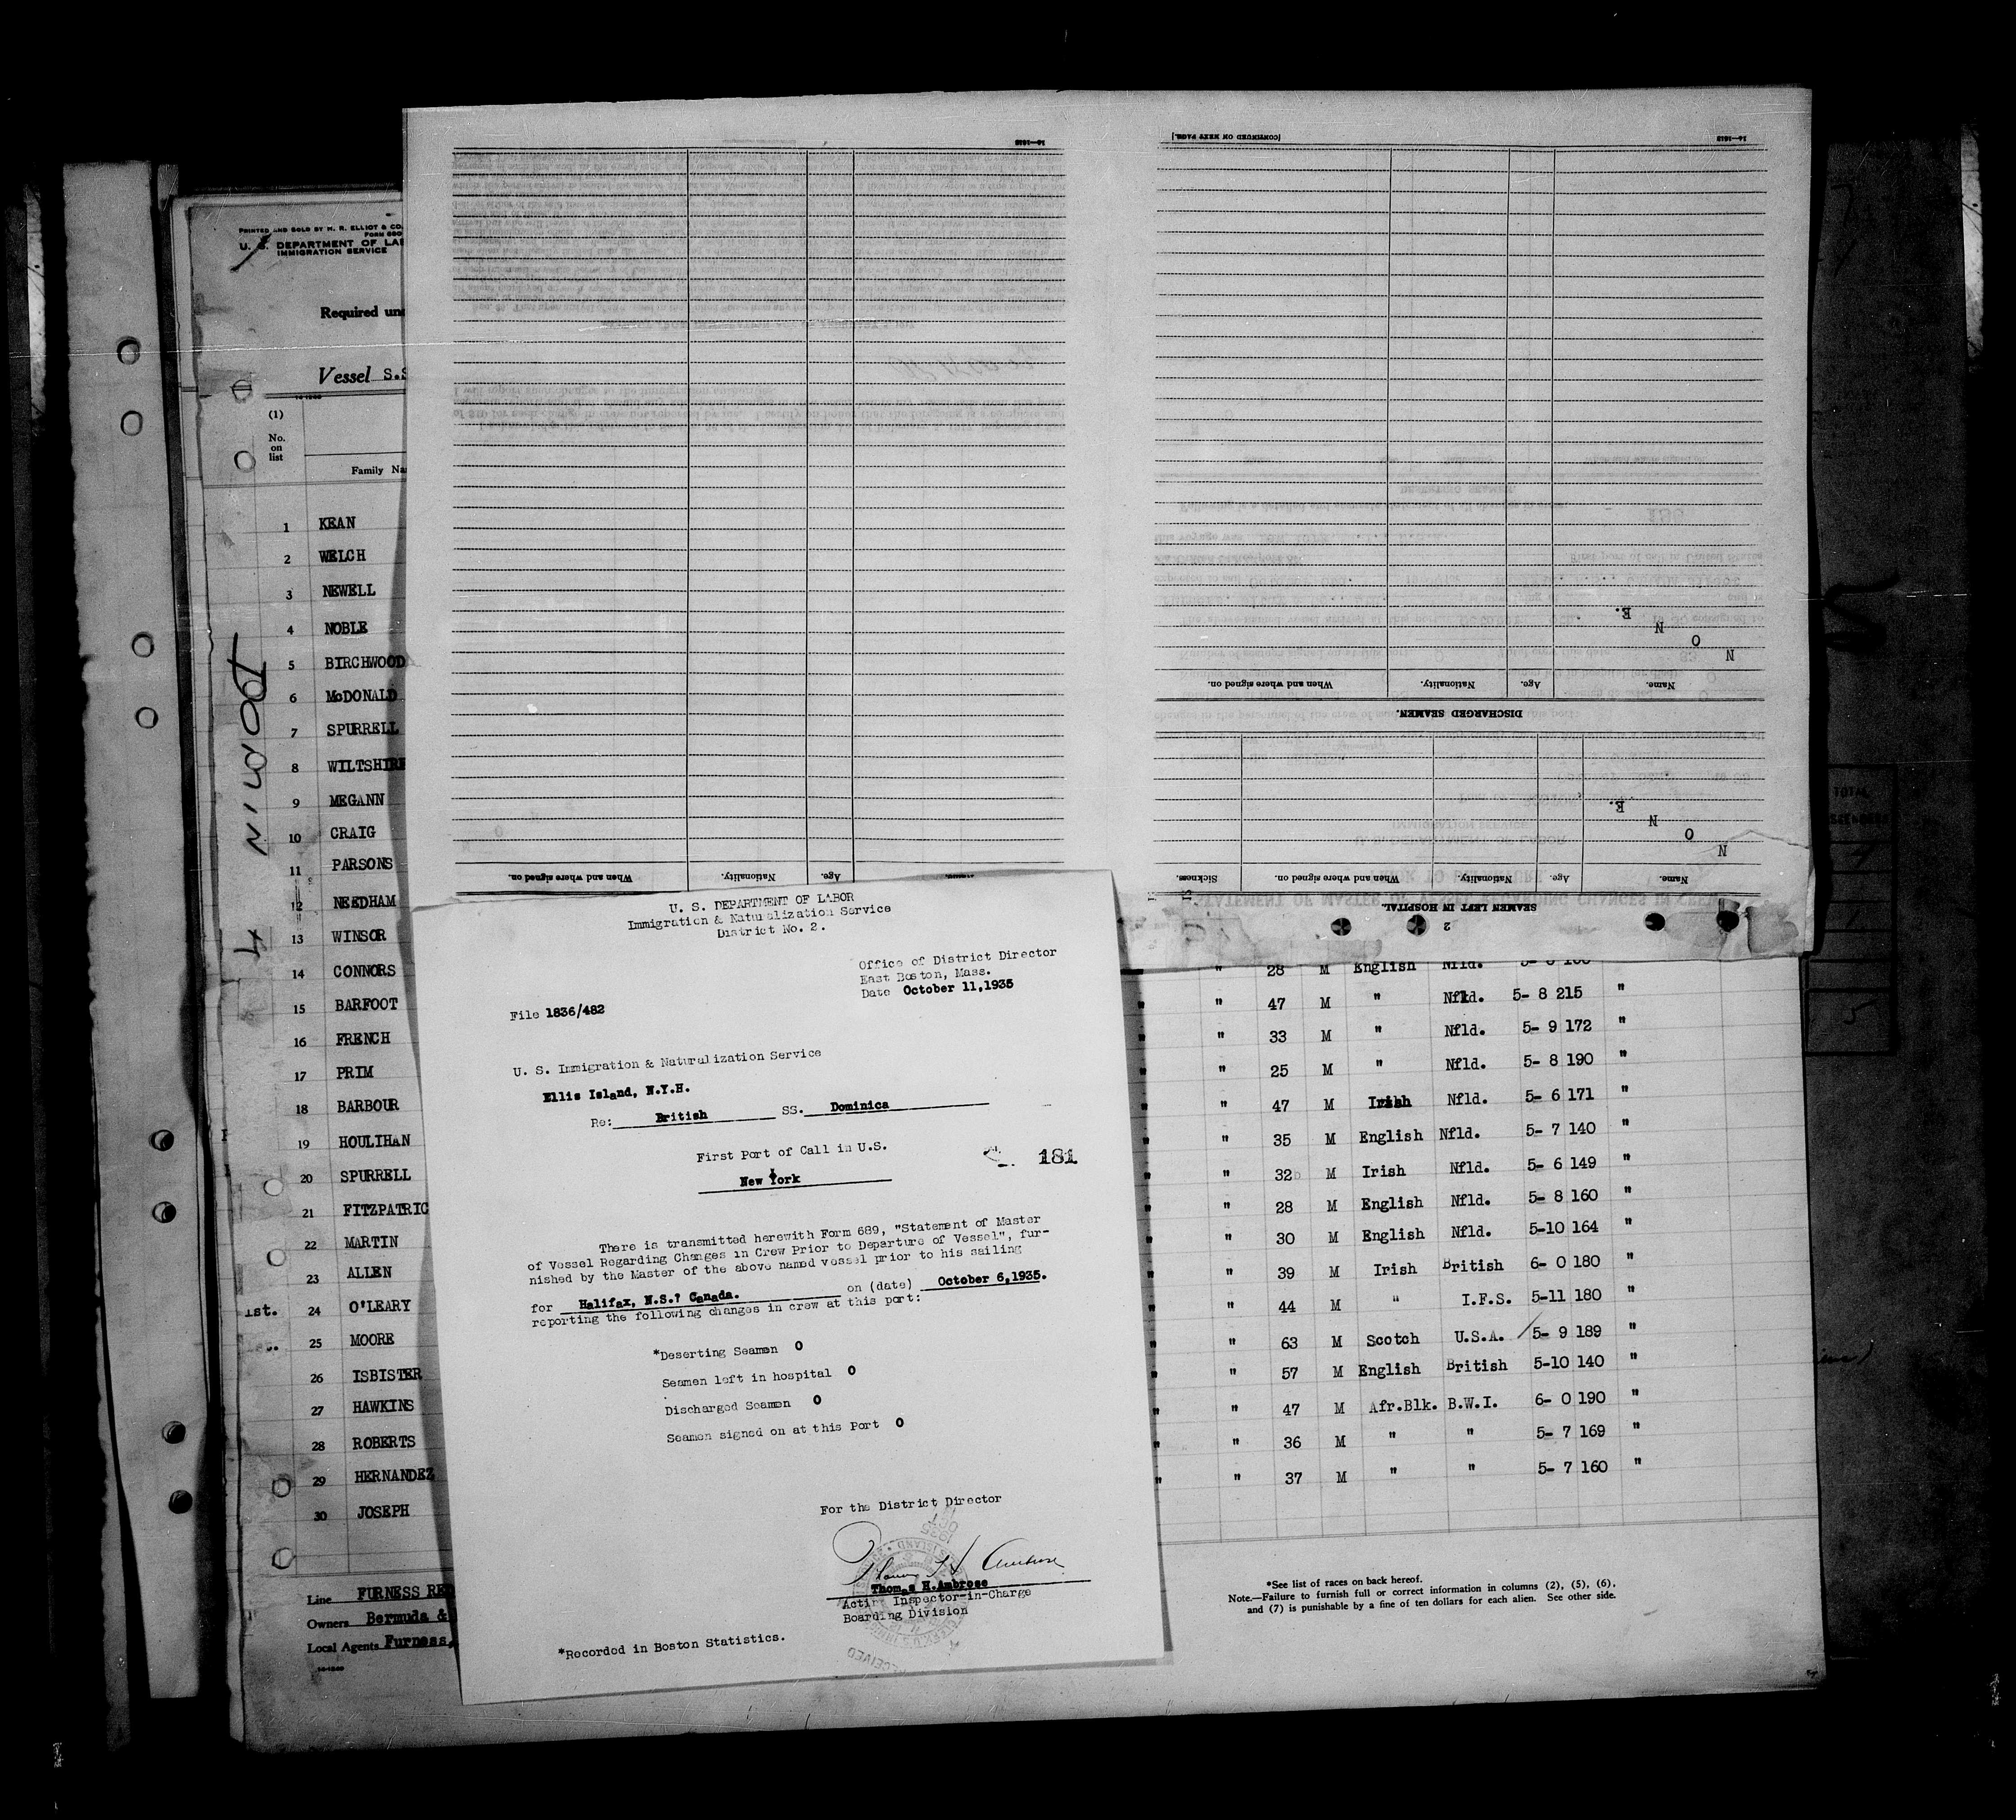 PRINTED AND SOLD BY H. R. ELLIOT & CO.
FORM 680
U. S. DEPARTMENT OF LA
IMMIGRATION SERVICE
Required un
Vessel S.S
(1)
No.
on
list
Family Na
1 KEAN
2 WELCH
3 NEWELL
4 NOBLE
5 BIRCHWOOD
6 McDONALD
7 SPURRELL
8 WILTSHIRE
9 MEGANN
10 CRAIG
11 PARSONS
12 NEEDHAM
13 WINSOR
14 CONNORS
15 BARFOOT
16 FRENCH
17 PRIM
18 BARBOUR
19 HOULIHAN
20 SPURRELL
21 FITZPATRIC
22 MARTIN
23 ALLEN
1st. 24 O'LEARY
25 MOORE
26 ISBISTER
27 HAWKINS
28 ROBERTS
29 HERNANDEZ
30 JOSEPH
Line FURNESS RED
Owners Bermuda &
Local Agents Furness,
[CONTINUED ON NEXT PAGE.]
N O N E.
Name. Age. Nationality. When and where signed on.
DISCHARGED SEAMEN.
N O N E.
Name. Age. Nationality. When and where signed on. Sickness.
SEAMEN LEFT IN HOSPITAL
2
Age. Nationality. When and where signed on.
U. S. DEPARTMENT OF LABOR
Immigration & Naturalization Service
District No. 2.
Office of District Director
East Boston, Mass.
Date October 11,1935
File 1836/482
U. S. Immigration & Naturalization Service
Ellis Island, N.Y.H.
Re: British SS. Dominica
First Port of Call in U.S.
181
New York
There is transmitted herewith Form 689, "Statement of Master
of Vessel Regarding Changes in Crew Prior to Departure of Vessel", fur-
nished by the Master of the above named vessel prior to his sailing
for Halifax, N.S.? Canada. on (date) October 6,1935.
reporting the following changes in crew at this port:
*Deserting Seamen 0
Seamen left in hospital 0
Discharged Seamen 0
Seamen signed on at this Port 0
For the District Director
Thomas H. Ambrose
Thomas H.Ambrose
Acting Inspector-in-Charge
Boarding Division
*Recorded in Boston Statistics.
" 28 M English Nfld.
" " 47 M " Nfld. 5- 8 215 "
" " 33 M " Nfld. 5- 9 172 "
" " 25 M " Nfld. 5- 8 190 "
" " 47 M Irish Nfld. 5- 6 171 "
" " 35 M English Nfld. 5- 7 140 "
" " 32 M Irish Nfld. 5- 6 149 "
" " 28 M English Nfld. 5- 8 160 "
" " 30 M English Nfld. 5-10 164 "
" " 39 M Irish British 6- 0 180 "
" " 44 M " I.F.S. 5-11 180 "
" " 63 M Scotch U.S.A. 5- 9 189 "
" " 57 M English British 5-10 140 "
" " 47 M Afr.Blk. B.W.I. 6- 0 190 "
" " 36 M " " 5- 7 169 "
" " 37 M " " 5- 7 160 "
*See list of races on back hereof.
Note.—Failure to furnish full or correct information in columns (2), (5), (6),
and (7) is punishable by a fine of ten dollars for each alien. See other side.